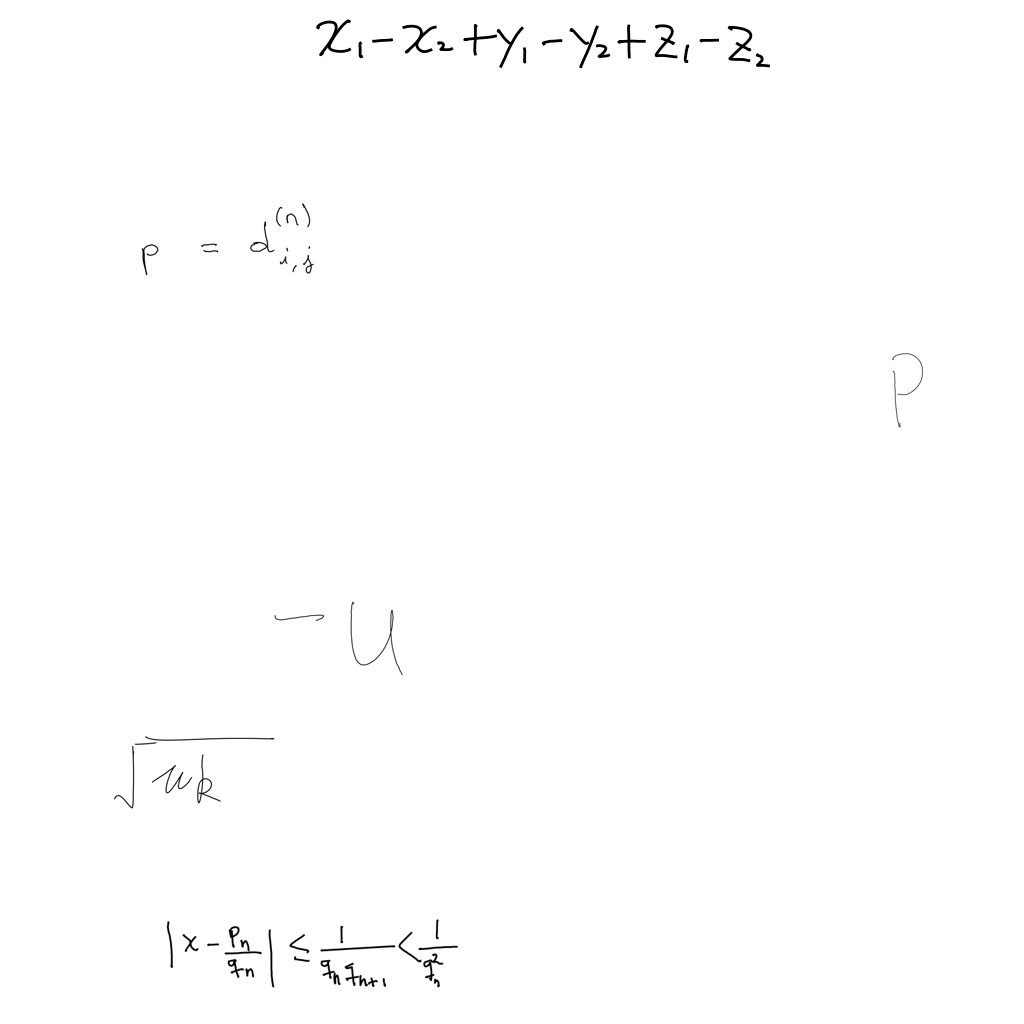 x₁ - x₂ + y₁ - y₂ + z₁ - z₂
p = d_{i,j}^{(n)}
p
- u
\sqrt{uk}
|x - \frac{p_n}{q_n}| ≤ \frac{1}{q_n q_{n+1}} < \frac{1}{q_n^2}